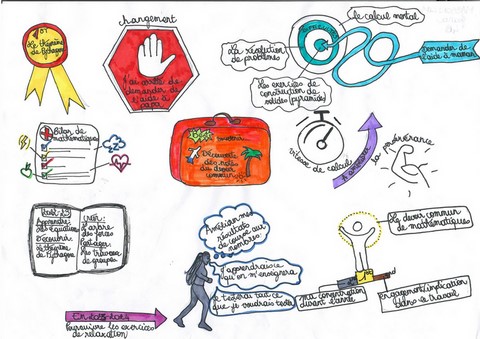 n°1
Le théorème
de Pythagore
changement
J'ai arrêté de
demander de
l'aide à
papa
La résolution
de problèmes
le calcul mental
Les exercices de
construction de
solides (pyramides)
Demander de
l'aide à maman
Bilan de
mathématiques
souvenir
Découverte
des notes
du devoir
commun
vitesse de calcul
la persévérance
Apprendre:
les équations
Découvrir
le théorème
de Pythagore
Créer:
L'arbre
des fêtes
Partager:
les travaux
de groupe
Améliorer mes
résultats
de course aux
nombres:
J'apprendrais ce
qu'on m'enseignera
Je testerai tout ce
que je voudrais tester
Le devoir commun
de mathématiques
ma concentration
durant l'année
Engagement/implication
dans le travail
En 2023-2024
Poursuivre les exercices
de relaxation